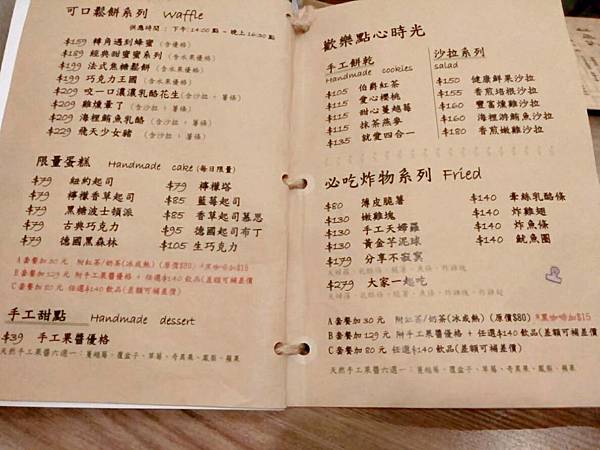 可口鬆餅系列 Waffle
供應時間：下午14:00點~晚上16:30點
$159 轉角遇到蜂蜜(含優格)
$189 經典甜蜜蜜系列(含水果優格)
$199 法式焦糖鬆餅(含水果優格)
$199 巧克力王國(含水果優格)
$209 咬一口濃濃乳酪花生(含沙拉，薯條)
$209 雞燻暈了(含沙拉，薯條)
$209 海裡鮪魚乳酪(含沙拉，薯條)
$229 飛天少女豬(含沙拉，薯條)
限量蛋糕 Handmade cake(每日限量)
$79 紐約起司 $79 檸檬塔
$79 檸檬香草起司 $85 藍莓起司
$79 黑糖波士頓派 $85 香草起司慕思
$79 古典巧克力 $95 德國起司布丁
$79 德國黑森林 $105 生巧克力
A套餐加30元 附紅茶/奶茶(冰或熱)(原價$80)*黑咖啡加$15
B套餐加129元 附手工果醬優格 + 任選$140飲品(差額可補差價)
C套餐加80元 任選$140飲品(差額可補差價)
手工甜點 Handmade dessert
$39 手工果醬優格
天然手工果醬六選一：蔓越莓、覆盆子、草莓、奇異果、鳳梨、蘋果
歡樂點心時光
手工餅乾
Handmade cookies
$105 伯爵紅茶
$115 愛心櫻桃
$115 甜心蔓越莓
$115 抹茶燕麥
$135 就愛四合一
沙拉系列
salad
$150 健康鮮果沙拉
$155 香煎培根沙拉
$160 豐富燻雞沙拉
$160 海裡游鮪魚沙拉
$180 香煎嫩雞沙拉
必吃炸物系列 Fried
$80 薄皮脆薯 $140 牽絲乳酪條
$130 嫩雞塊 $140 炸雞翅
$130 手工天婦羅 $140 炸魚條
$130 黃金芋泥球 $140 魷魚圈
$179 分享不寂寞
$279 大家一起吃
A套餐加30元 附紅茶/奶茶(冰或熱)(原價$80)*黑咖啡加$15
B套餐加129元 附手工果醬優格 + 任選$140飲品(差額可補差價)
C套餐加80元 任選$140飲品(差額可補差價)
天然手工果醬六選一：蔓越莓、覆盆子、草莓、奇異果、鳳梨、蘋果